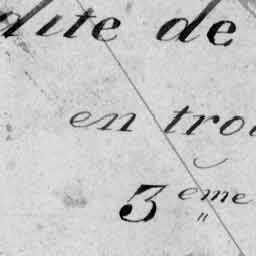 dite de
en troi
3 eme "